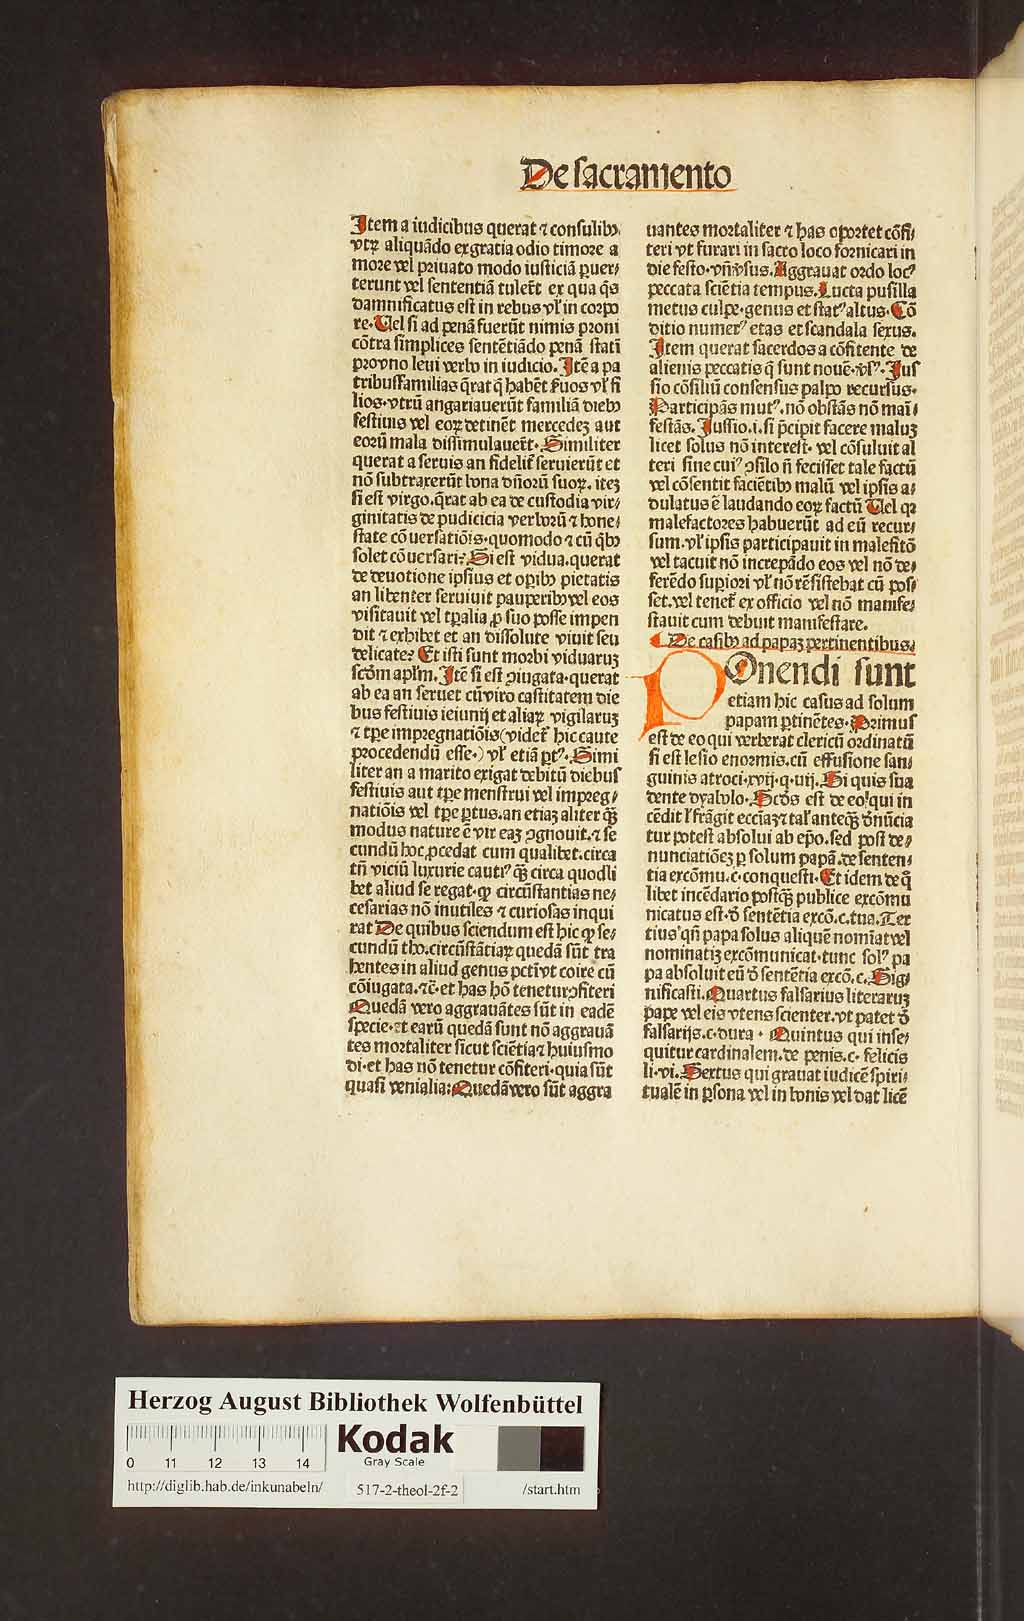 De sacramento
Item a iudicibus querat ⁊ consulibꝫ
vtꝝ aliquãdo ex gratia odio timore a
more vel priuato modo iusticiã ꝑuer⸗
terunt vel sententiã tuler̃t ex qua q̃s
damnificatus est in rebus vl̓ in corpo
re. Uel si ad penã fuerũt nimis proni
cõtra simplices sentẽtiãdo penã statĩ
pro vno leui verbo in iudicio. Itẽ a pa
tribusfamilias q̃rat q̓ habẽt ẜuos vl̓ fi
lios. vtrũ angariauerũt familiã diebꝫ
festiuis vel eoꝝ detinẽt mercedeʒ aut
eorũ mala dissimulauer̃t. Similiter
querat a seruis an fidelit̃ seruierũt et
nõ subtraxerũt bona dñorũ suoꝝ. iteʒ
si est virgo. q̃rat ab ea de custodia vir⸗
ginitatis de pudicicia verborũ ⁊ hone⸗
state cõuersatiõis. quomodo ⁊ cũ q̓bꝫ
solet cõuersari? Si est vidua. querat
de deuotione ipsius et oꝑibꝫ pietatis
an libenter seruiuit pauperibꝫ vel eos
visitauit vel tꝑalia ꝓ suo posse impen
dit ⁊ exhibet et an dissolute viuit seu
delicate? Et isti sunt morbi viduaruʒ
scdm̃ aplm̃. Itẽ si est ꝯiugata. querat
ab ea an seruet cũ viro castitatem die
bus festiuis ieiunij et aliaꝝ vigilaruʒ
⁊ tꝑe impregnatiõis (videt̃ hic caute
procedendũ esse.) vl̓ etiã ꝑtꝰ. Simi
liter an a marito exigat debitũ diebus
festiuis aut tꝑe menstrui vel impreg⸗
natiõis vel tꝑe ꝑtus. an etiaʒ aliter q̃ʒ
modus nature ẽ vir eaʒ ꝯgnouit. ⁊ se
cundũ hoc ꝓcedat cum qualibet. circa
tñ viciũ luxurie cautiꝰ q̃ʒ circa quodli
bet aliud se regat. ꝙ circũstantias ne⸗
cesarias nõ inutiles ⁊ curiosas inqui
rat De quibus sciendum est hic ꝙ se⸗
cundũ tho. circũstãtiaꝝ quedã sũt tra
hentes in aliud genus pcti vt coire cũ
cõiugata. ⁊c̃. et has hõ tenetur ꝯfiteri
Quedã vero aggrauãtes sũt in eadẽ
specie. et earũ quedã sunt nõ aggrauã
tes mortaliter sicut sciẽtia ⁊ huiusmo
di. et has nõ tenetur cõfiteri. quia sũt
quasi venialia: Quedã vero sũt aggra
uantes mortaliter ⁊ has oportet cõfi⸗
teri vt furari in sacro loco fornicari in
die festo. vñ v̓sus. Aggrauat ordo locꝰ
peccata sciẽtia tempus. Lucta pusilla
metus culpe. genus et statꝰ altus. Cõ
ditio numerꝰ etas et scandala sexus.
Item querat sacerdos a cõfitente de
alienis peccatis q̃ sunt nouẽ. v̓sꝰ. Jus
sio cõsiliũ consensus palpo recursus.
Participãs mutꝰ. nõ obstãs nõ mani⸗
festãs. Jussio. i. si p̃cipit facere maluʒ
licet solus nõ interest. vel cõsuluit al
teri sine cuiꝰ ꝯsilo ñ fecisset tale factũ
vel cõsentit faciẽtibꝫ malũ vel ipsis a⸗
dulatus ẽ laudando eoꝝ factũ Uel qꝛ
malefactores habuerũt ad eũ recur⸗
sum. vl̓ ipsis participauit in malefitõ
vel tacuit nõ increpãdo eos vel nõ de⸗
ferẽdo suꝑiori vl̓ nõ resistebat cũ pos⸗
set. vel tenet̃ ex officio vel nõ manife⸗
stauit cum debuit manifestare.
De casibꝫ ad papaʒ pertinentibus.
POnendi sunt
etiam hic casus ad solum
papam ꝑtinẽtes. Primus
est de eo qui verberat clericũ ordinatũ
si est lesio enormis. cũ effusione san⸗
guinis atroci. xvij. q. iiij. Si quis sua
dente dyabolo. Scds̃ est de eo qui in
cẽdit l̓ frãgit ecciãʒ ⁊ tal̓ anteq̃ʒ d̓nũcia
tur potest absolui ab ep̃o. sed post de⸗
nunciatiõeʒ ꝑ solum papã. de senten⸗
tia excõmu. c. conquesti. Et idem de q̃
libet incẽdario postq̃ʒ publice excõmu
nicatus est. d̓ sentẽtia excõ. c. tua. Ter
tius qñ papa solus aliquẽ nomiat vel
nominatiʒ excõmunicat. tunc solꝰ pa
pa absoluit eũ d̓ sentẽtia excõ. c. Sig⸗
nificasti. Quartus falsarius literaruʒ
pape vel eis vtens scienter. vt patet d̓
falsarijs. c. dura. Quintus qui inse⸗
quitur cardinalem. de penis. c. felicis
li. vi. Sextus qui grauat iudicẽ spiri⸗
tualẽ in ꝑsona vel in bonis vel dat licẽ
Herzog August Bibliothek Wolfenbüttel
0 11 12 13 14
Kodak
Gray Scale
http://diglib.hab.de/inkunabeln/ 517-2-theol-2f-2 /start.htm